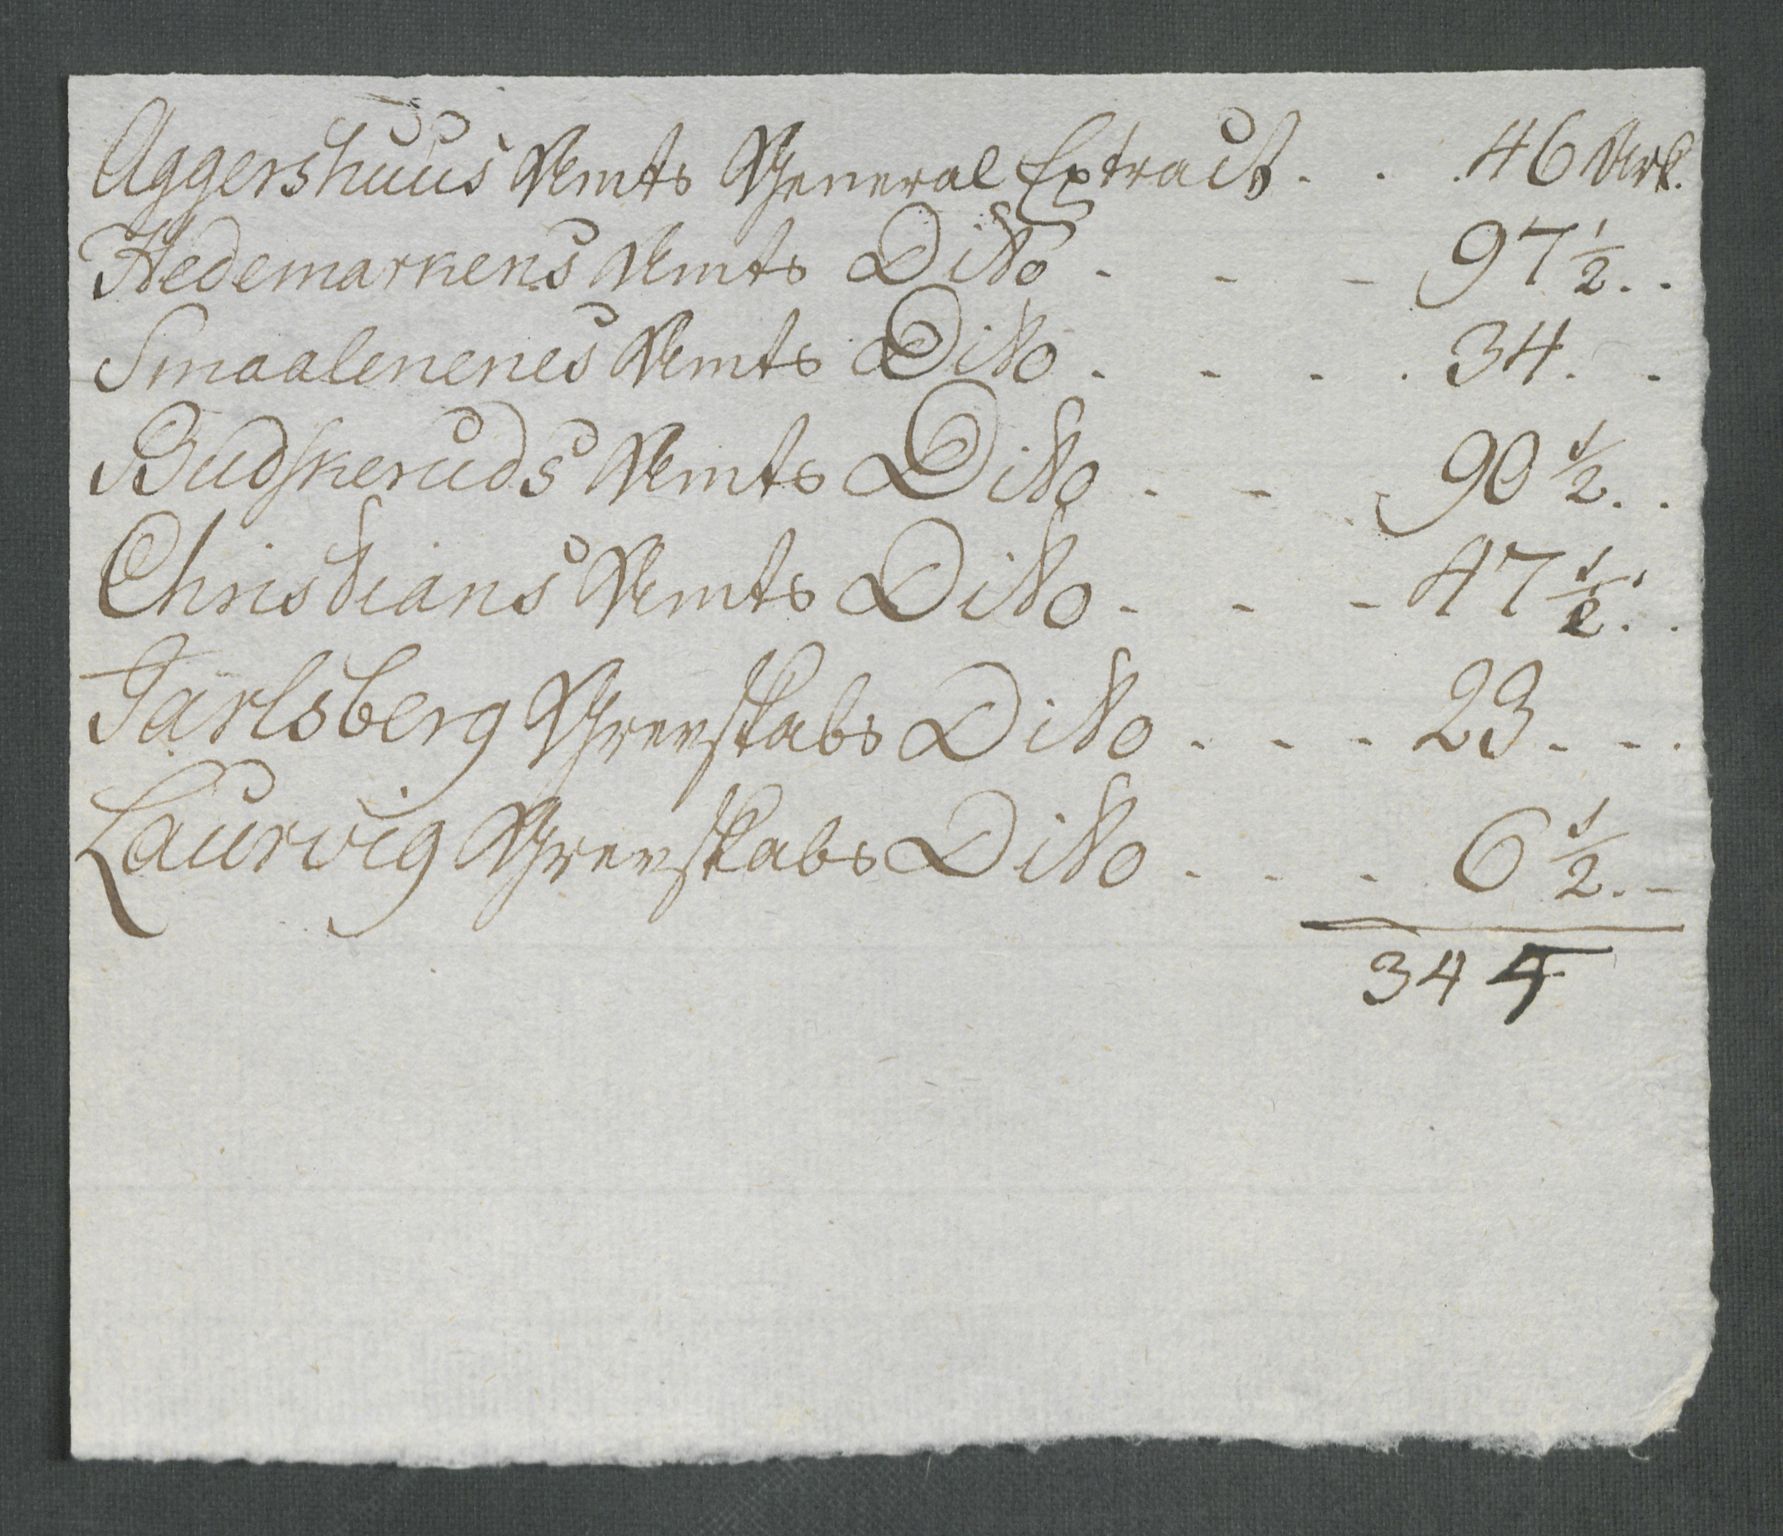 Aggershuus Amts General Extract . . . 46 Ark.
Hedemarkens Amts Ditto . - - 97 1/2 . .
Smaalenenes Amts Ditto . - . . 34 . .
Budskeruds Amts Ditto . - . 90 1/2 . .
Christians Amts Ditto . - - 47 1/2 . .
Jarlsberg Grevskabs Ditto . - - 23 . - .
Laurvig Grevskabs Ditto . . . 6 1/2 . -
345